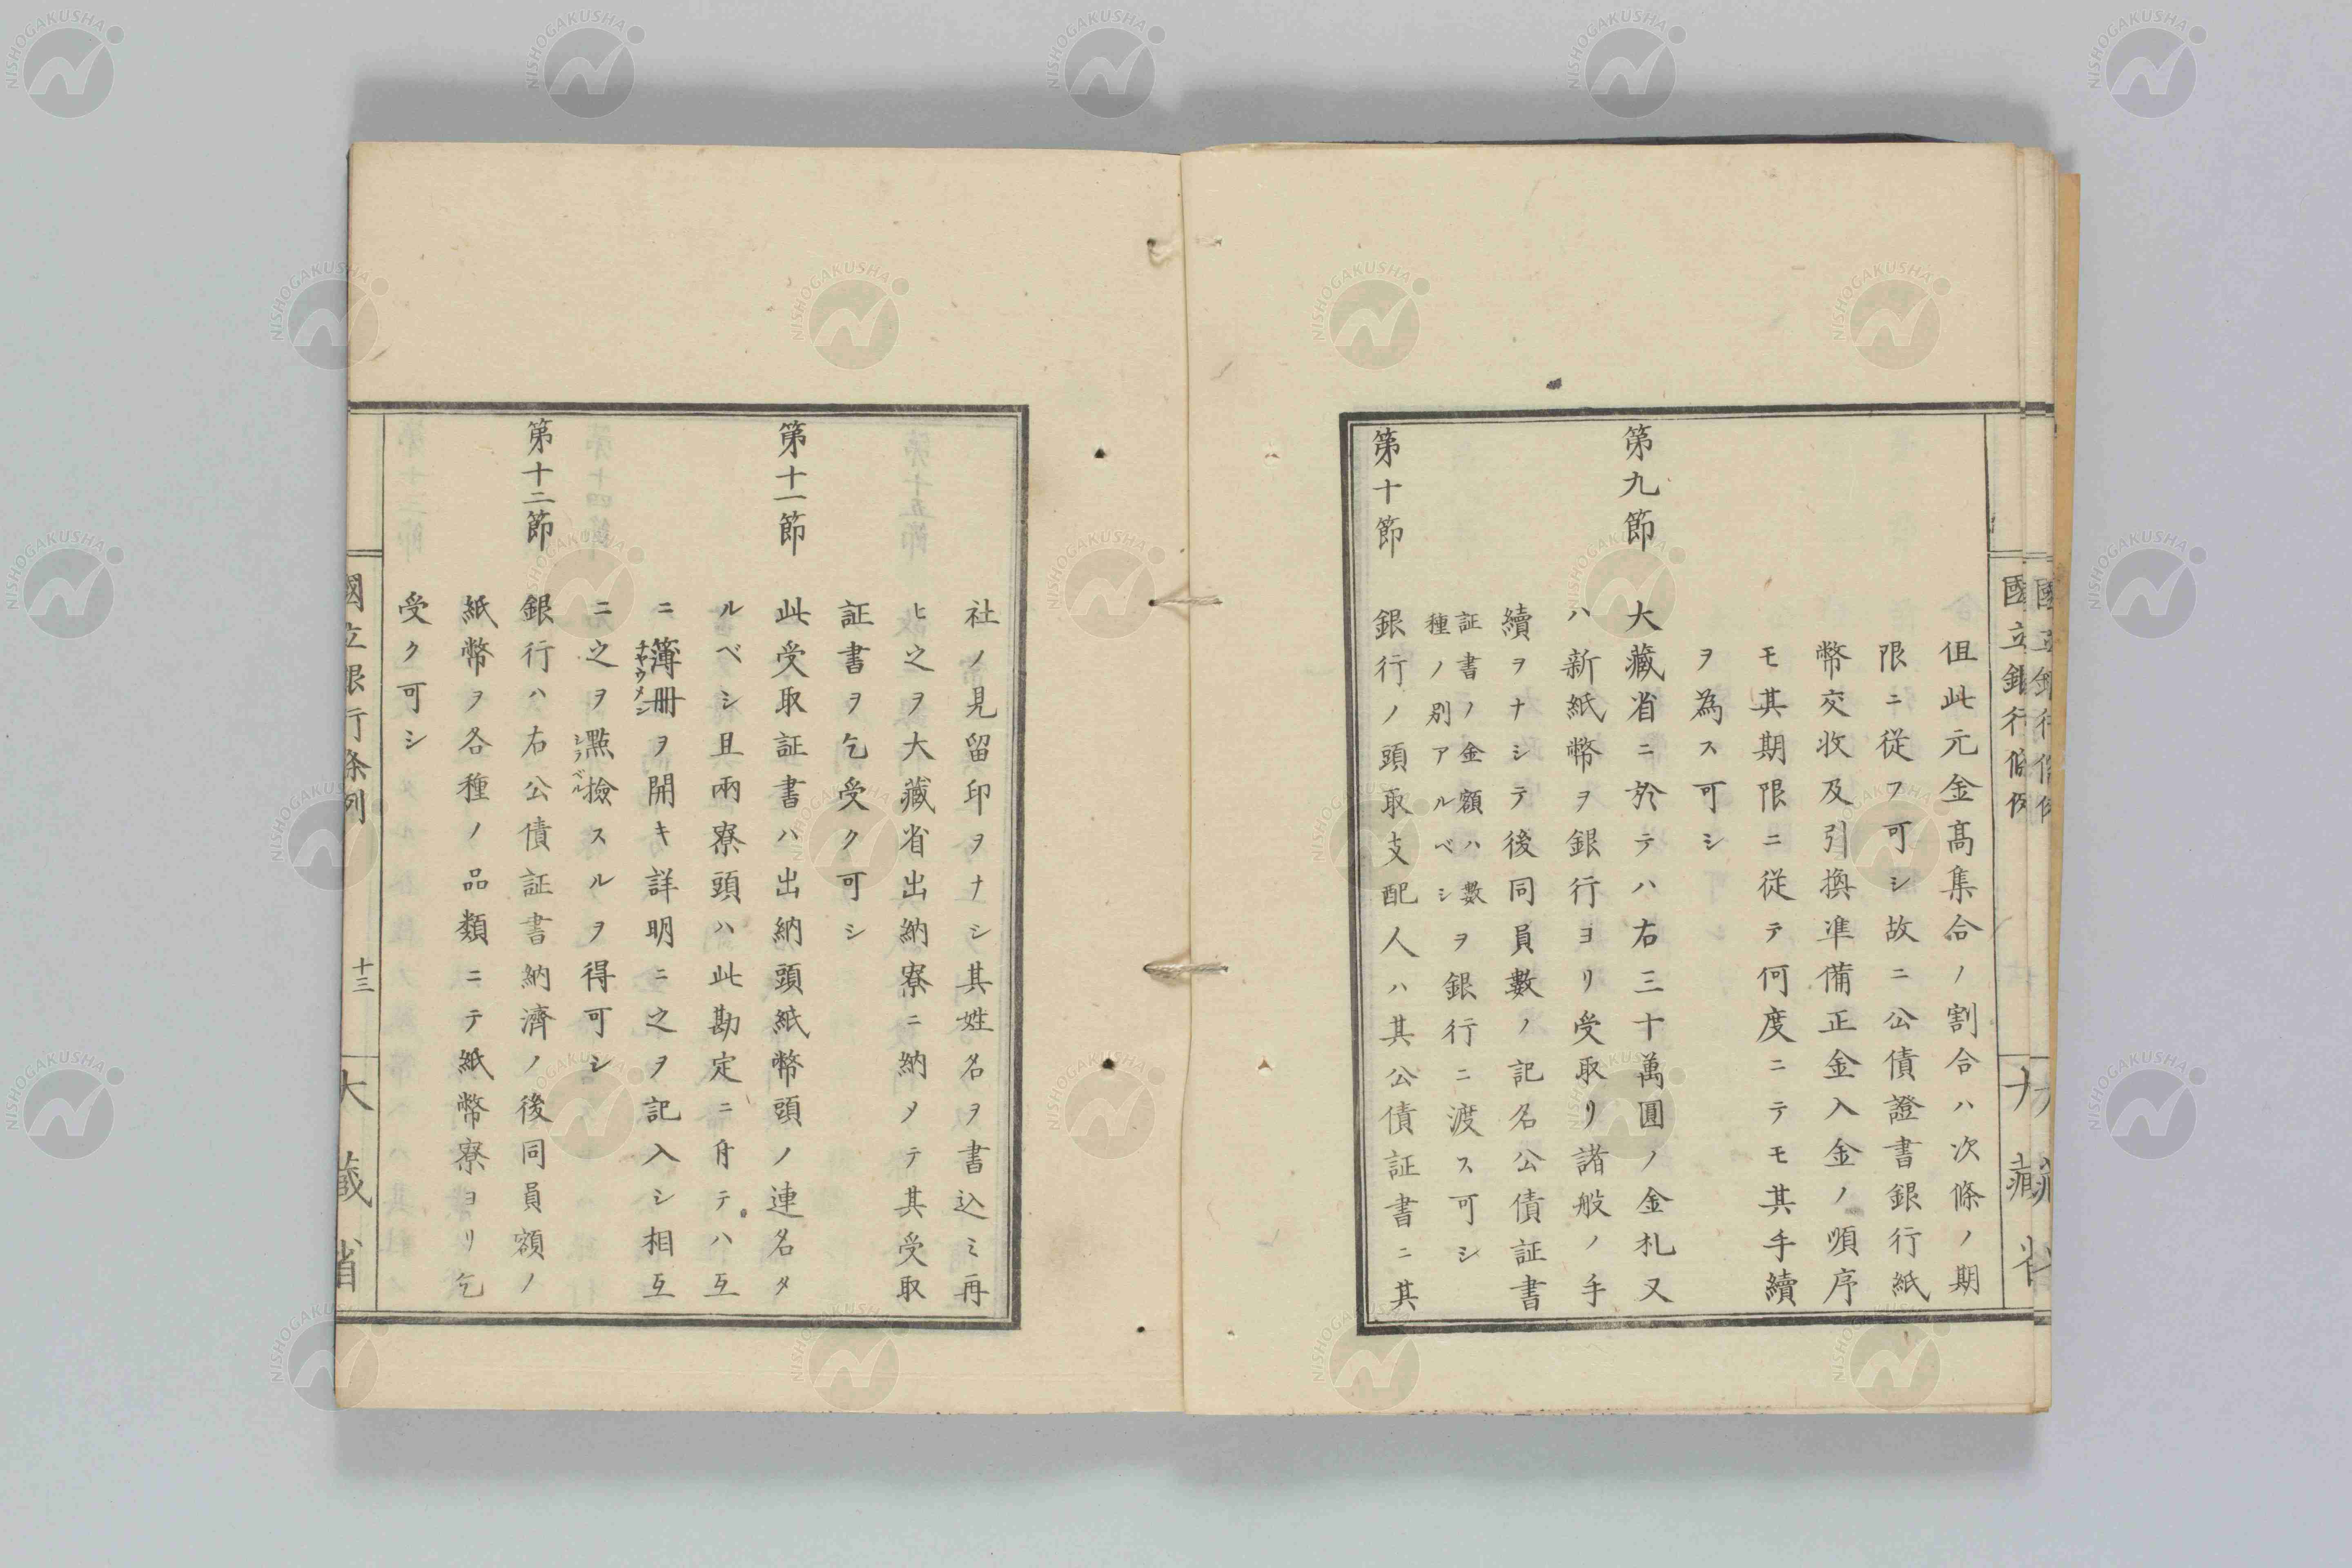 伹此元金高集合ノ割合ハ次條ノ期
限ニ從フ可シ故ニ公債證書銀行紙
幣交收及引換準備正金入金ノ順序
モ其期限ニ從テ何度ニテモ其手續
ヲ為ス可シ
第九節
大藏省ニ於テハ右三十萬圓ノ金札又
ハ新紙幣ヲ銀行ヨリ受取リ諸般ノ手
續ヲナシテ後同員數ノ記名公債証書
証書ノ金額ハ數
種ノ別アルベシ
ヲ銀行ニ渡ス可シ
第十節
銀行ノ頭取支配人ハ其公債証書ニ其
社ノ見留印ヲナシ其姓名ヲ書込ミ再
ヒ之ヲ大藏省出納寮ニ納メテ其受取
証書ヲ乞受ク可シ
第十一節
此受取証書ハ出納頭紙幣頭ノ連名タ
ルベシ且兩寮頭ハ此勘定ニ付テハ互
ニ簿册ヲ開キ詳明ニ之ヲ記入シ相互
チヤウメン
ニ之ヲ點撿スルヲ得可シ
シラベル
第十二節
銀行ハ右公債証書納濟ノ後同員額ノ
紙幣ヲ各種ノ品類ニテ紙幣寮ヨリ乞
受ク可シ
國立銀行條例
十三
大藏省
國立銀行條例
大藏省
NISHOGAKUSHA